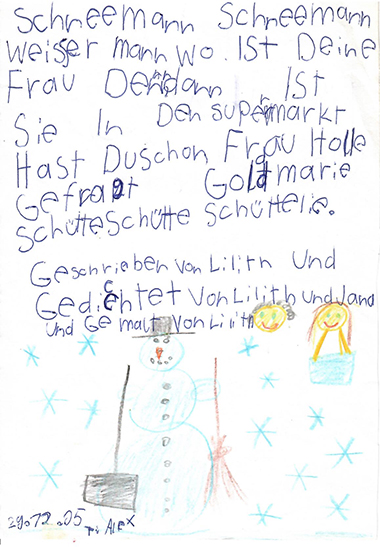 Schneemann Schneemann
weisser mann wo. Ist Deine
Frau Denndann Ist
Sie In Den supermarkt
Hast Duschon Frau Holle
Gefragt Goldmarie
schütte Schütte Schüttelie.
Geschrieben von Lilith und
Gedichtet von Lilith und Jana
und Gemalt von Lilith
29.12.05 ALEX